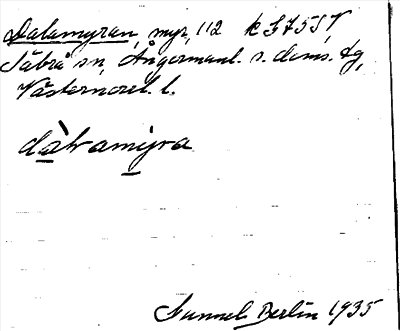 Dalamyran, myr, 112 k 375 SV
Säbrå sn, Ångermanl. s. doms. tg,
Västernorrl. l.
dàlamy̱ra
Gunnel Berlin 1935